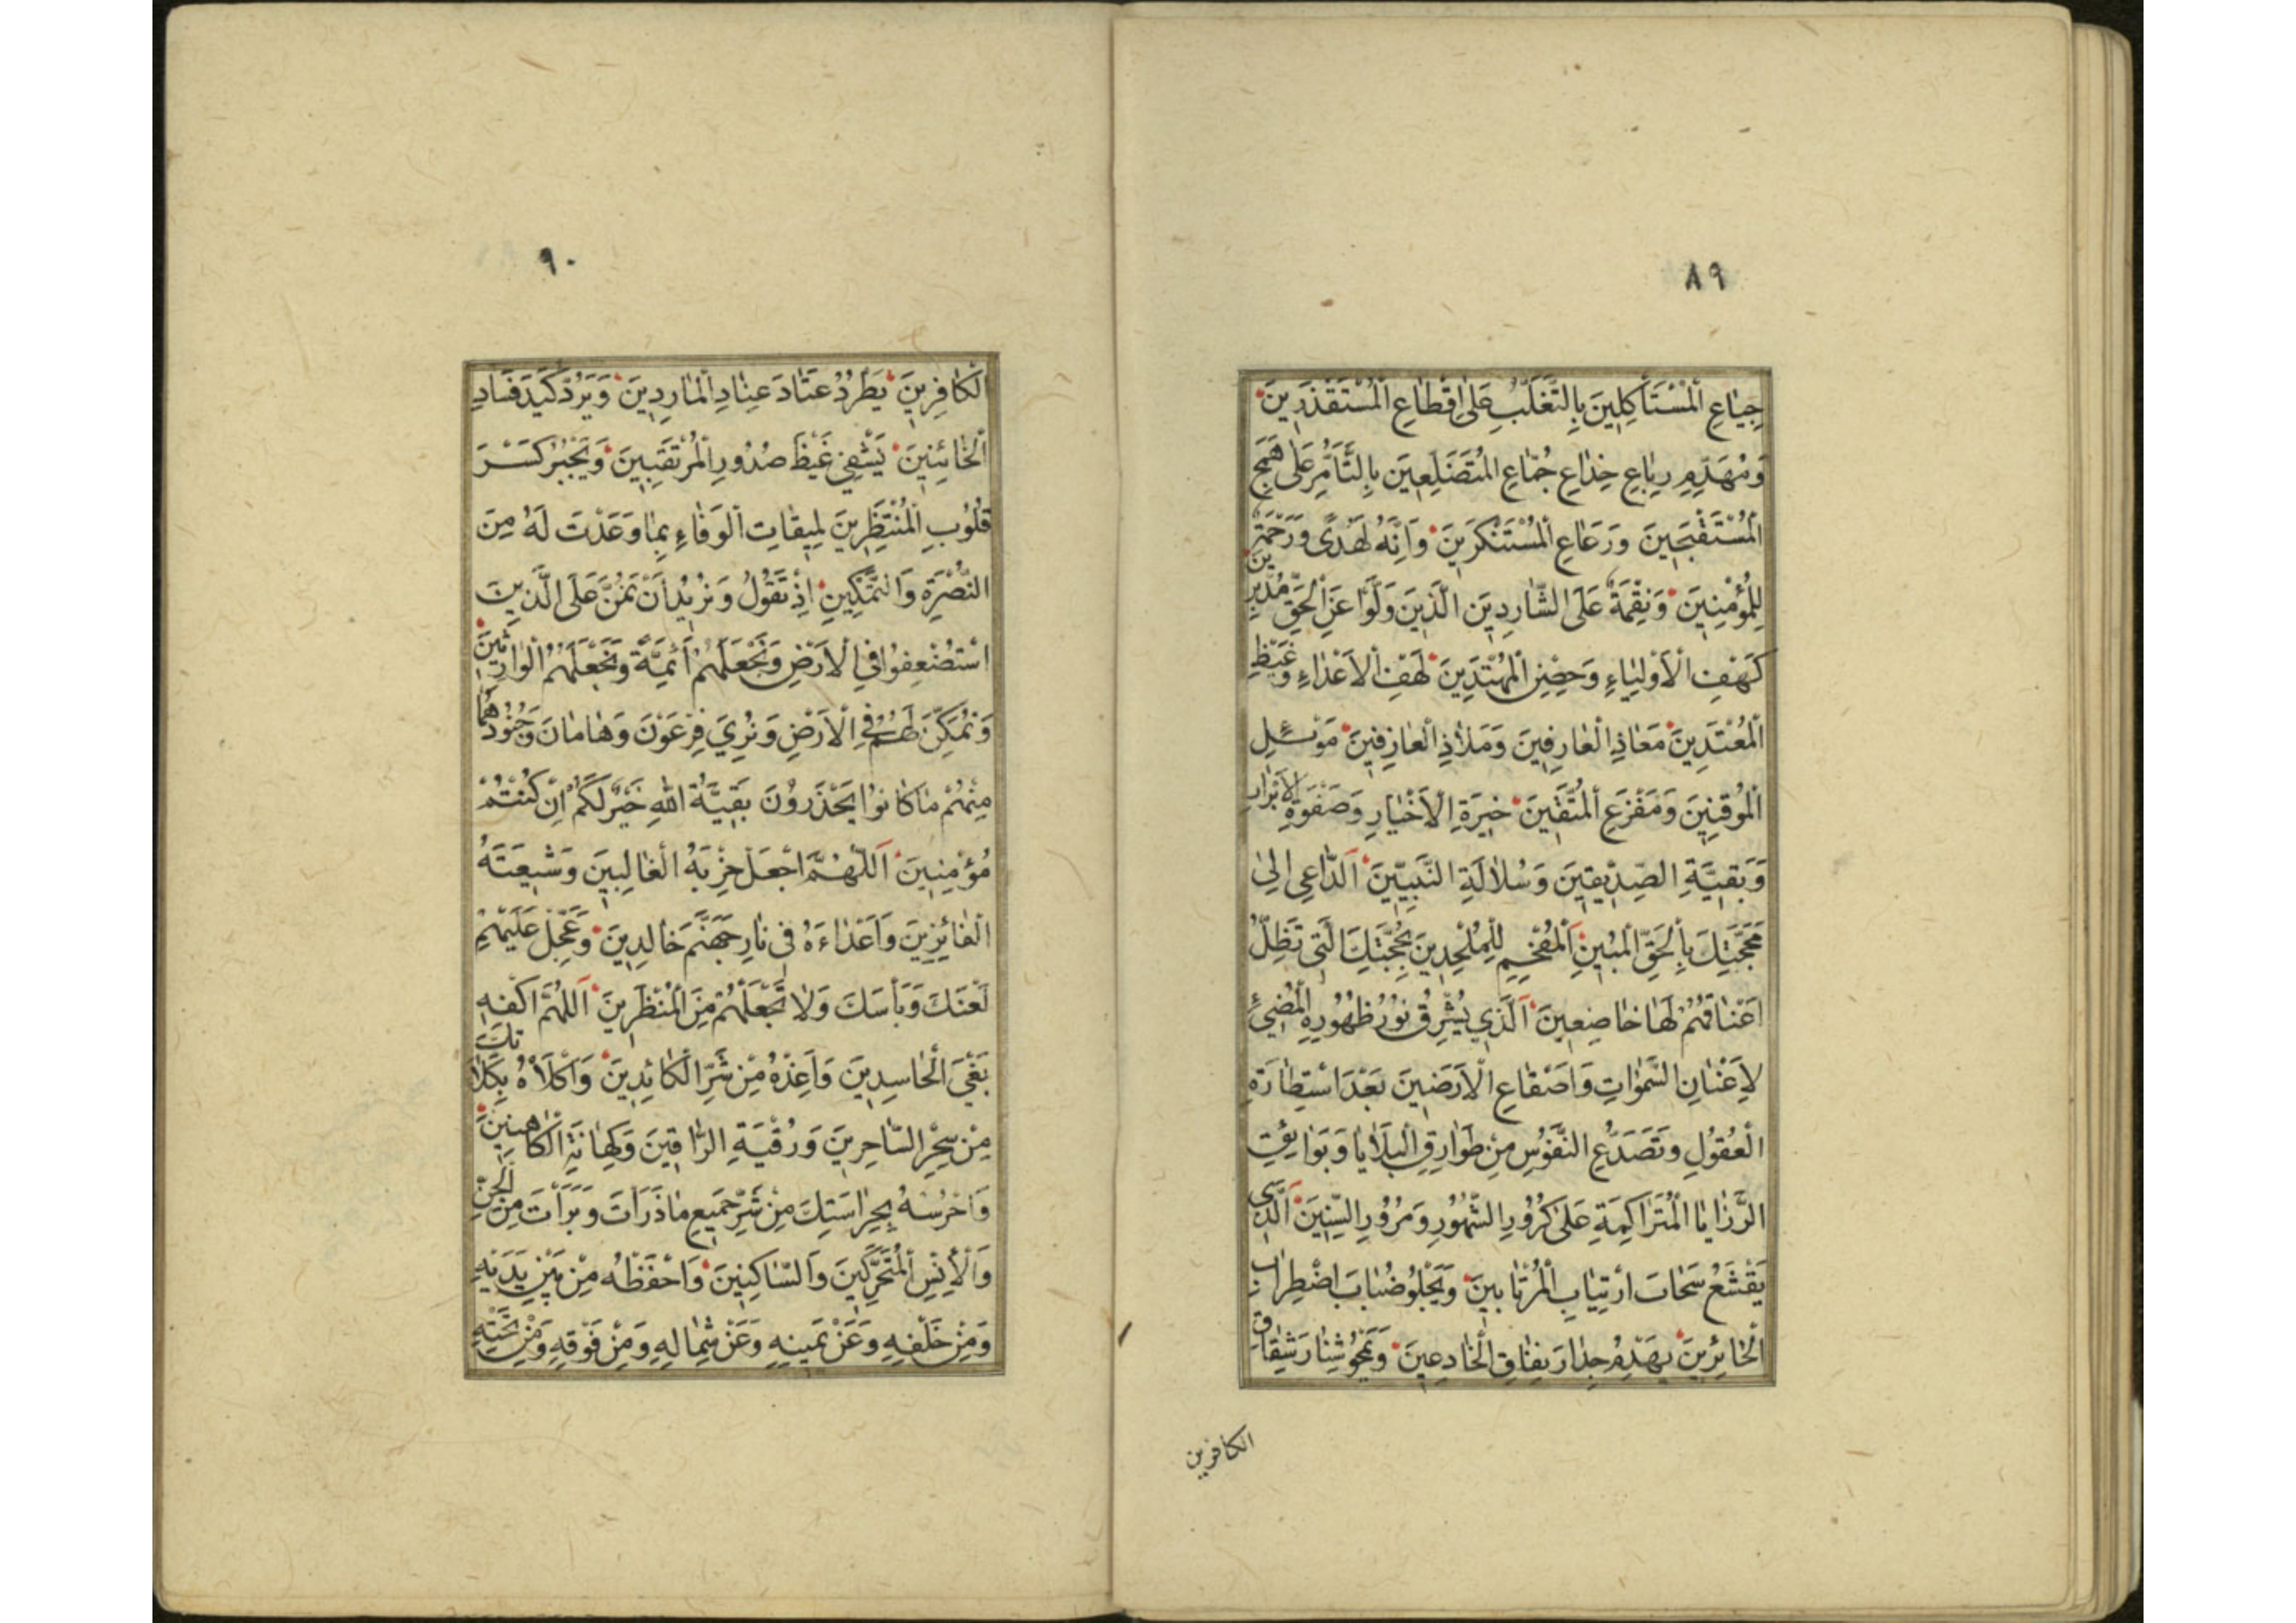 ٨٩
جِيٰاعِ ٱلْمُسْتَأْكِلِينَ بِالتَّغَلُّبِ عَلىٰ اِقْطٰاعِ ٱلْمُسْتَقْذَرِينَ
وَمُهَدِّمِ رِبٰاعِ خِدٰاعِ جُمّٰاعِ الْمُتَضَلِّعِينَ بِالتَّأَمُّرِ عَلىٰ هَمَجِ
ٱلْمُسْتَقْبَحِينَ وَرَعَاعِ ٱلْمُسْتَنْكَرِينَ وَاَنَّهُ لَهُدًى وَرَحْمَةٌ
لِلْمُؤْمِنِينَ وَنِقْمَةٌ عَلَى الشّٰارِدِينَ الَّذِينَ وَلَّوْا عَنِ ٱلْحَقِّ مُدْبِرِينَ
كَهْفِ الْاَوْلِيٰاءِ وَحِصْنِ ٱلْمُهْتَدِينَ لَهْفِ ٱلْاَعْدٰاءِ وَغَيْظِ
ٱلْمُعْتَدِينَ مَعَاذِ ٱلْعٰارِفِينَ وَمَلاٰذِ ٱلْعٰازِفِينَ مَوْئِلِ
ٱلْمُوقِنِينَ وَمَفْزَعِ ٱلْمُتَّقِينَ خِيَرَةِ الْاَخْيٰارِ وَصَفْوَةِ الْاَبْرٰارِ
وَبَقِيَّةِ الصِّدِّيقِينَ وَسُلاٰلَةِ النَّبِيِّينَ اَلدّٰاعِي اِلىٰ
مَحَجَّتِكَ بِالْحَقِّ ٱلْمُبِينِ اَلْمُفْحِمِ لِلْمُلْحِدِينَ بِحُجَّتِكَ الَّتِي تَظِلُّ
اَعْنٰاقُهُمْ لَهٰا خٰاضِعِينَ اَلَّذِي يُشْرِقُ نُورُ ظُهُورِهِ ٱلْمُضِيئُ
لِاَعْنٰانِ السَّمٰوٰاتِ وَاَصْقٰاعِ الْاَرَضِينَ بَعْدَ اسْتِطٰارَةِ
ٱلْعُقُولِ وَتَصَدُّعِ النُّفُوسِ مِنْ طَوَارِقِ ٱلْبَلاٰيٰا وَبَوَايِقِ
الرَّزٰايٰا الْمُتَرٰاكِمَةِ عَلىٰ كُرُورِ الشُّهُورِ وَمُرُورِ السِّنِينَ اَلَّذِي
يَقْشَعُ سَحٰابَ ارْتِيٰابِ ٱلْمُرْتٰابِينَ وَيَجْلُو ضُبٰابَ اضْطِرٰابِ
ٱلْحٰائِرِينَ يَهْدِمُ جِدٰارَ نِفٰاقِ ٱلْخٰادِعِينَ وَيَمْحُو شِنٰارَ شِقٰاقِ
الكافرين
٩٠
ٱلْكٰافِرِينَ يَطْرُدُ عَتَادَ عِنٰادِ ٱلْمٰارِدِينَ وَيَرُدُّ كَيْدَ فَسٰادِ
ٱلْخٰائِنِينَ يَشْفِي غَيْظَ صُدُورِ ٱلْمُرْتَقِبِينَ وَيَجْبُرُ كَسْرَ
قُلُوبِ ٱلْمُنْتَظِرِينَ لِمِيقٰاتِ ٱلْوَفٰاءِ بِمٰا وَعَدْتَ لَهُ مِنَ
النُّصْرَةِ وَالتَّمْكِينِ اِذْ تَقُولُ وَنُرِيدُ اَنْ نَمُنَّ عَلَى الَّذِينَ
اسْتُضْعِفُوا فِي الْاَرْضِ وَنَجْعَلَهُمْ اَئِمَّةً وَنَجْعَلَهُمُ الْوٰارِثِينَ
وَنُمَكِّنَ لَهُمْ فِي الْاَرْضِ وَنُرِيَ فِرْعَوْنَ وَهٰامٰانَ وَجُنُودَهُمٰا
مِنْهُمْ مٰا كٰانُوا يَحْذَرُونَ بَقِيَّةُ اللهِ خَيْرٌ لَكُمْ اِنْ كُنْتُمْ
مُؤْمِنِينَ اَللّٰهُمَّ اجْعَلْ حِزْبَهُ الْغٰالِبِينَ وَشِيعَتَهُ
الْفٰائِزِينَ وَاَعْدٰاءَهُ فِي نٰارِ جَهَنَّمَ خٰالِدِينَ وَعَجِّلْ عَلَيْهِمْ
لَعْنَكَ وَبَأْسَكَ وَلاٰ تَجْعَلْهُمْ مِنَ ٱلْمُنْظَرِينَ اَللّٰهُمَّ اكْفِهِ
بَغْيَ ٱلْحٰاسِدِينَ وَاَعِذْهُ مِنْ شَرِّ الْكٰائِدِينَ وَاَكْلَأْهُ بِكَلٰاءَتِكَ
مِنْ سِحْرِ السّٰاحِرِينَ وَرُقْيَةِ الرّٰاقِينَ وَكِهٰانَةِ الْكٰاهِنِينَ
وَاحْرُسْهُ بِحِرٰاسَتِكَ مِنْ شَرِّ جَمِيعِ مٰا ذَرَأْتَ وَبَرَأْتَ مِنَ الْجِنِّ
وَالْاِنْسِ ٱلْمُتَحَرِّكِينَ وَالسّٰاكِنِينَ وَاحْفَظْهُ مِنْ بَيْنِ يَدَيْهِ
وَمِنْ خَلْفِهِ وَعَنْ يَمِينِهِ وَعَنْ شِمٰالِهِ وَمِنْ فَوْقِهِ وَمِنْ تَحْتِهِ